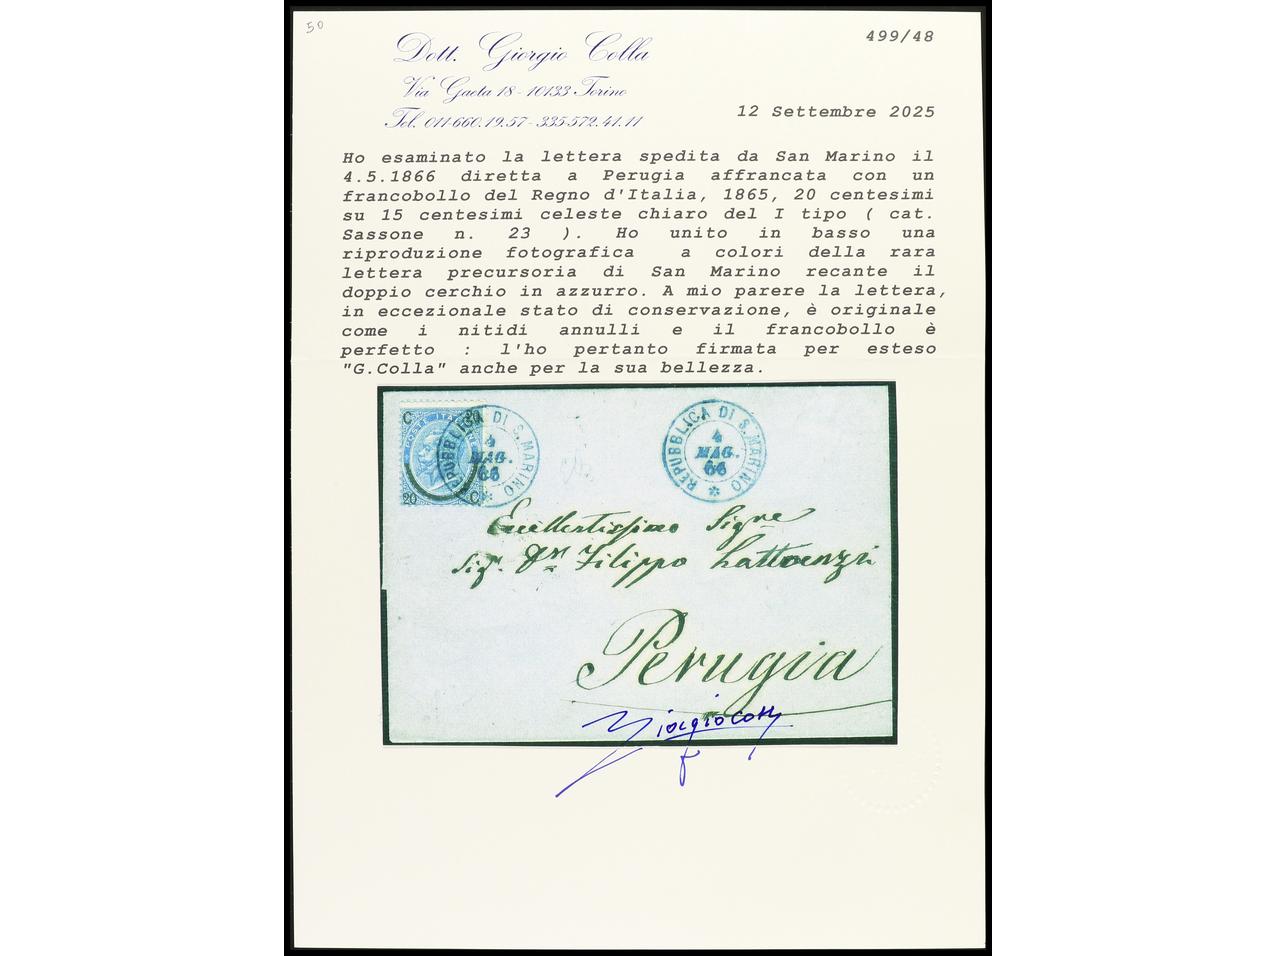 50
499/48
Dott. Giorgio Colla
Via Gaeta 18 - 10133 Torino
Tel. 011-660.19.57 - 335-572.41.11
12 Settembre 2025
Ho esaminato la lettera spedita da San Marino il
4.5.1866 diretta a Perugia affrancata con un
francobollo del Regno d'Italia, 1865, 20 centesimi
su 15 centesimi celeste chiaro del I tipo ( cat.
Sassone n. 23 ). Ho unito in basso una
riproduzione fotografica a colori della rara
lettera precursoria di San Marino recante il
doppio cerchio in azzurro. A mio parere la lettera,
in eccezionale stato di conservazione, è originale
come i nitidi annulli e il francobollo è
perfetto : l'ho pertanto firmata per esteso
"G.Colla" anche per la sua bellezza.
C 20
20 C
REPUBBLICA DI S. MARINO
4
MAG.
66
REPUBBLICA DI S. MARINO
4
MAG.
66
Eccellentissimo Sigre
Sigr. Filippo
Perugia
Giorgio Colla